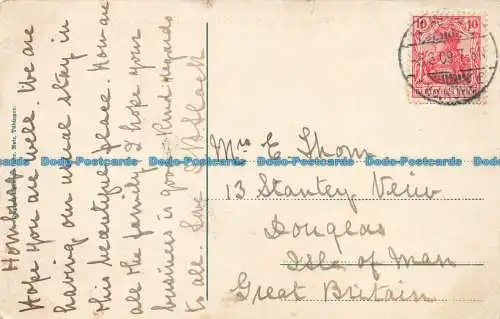 Homburg
Hope you are well. We are
having our usual stay in
this beautiful place. How are
all the family. I hope your
business is good. Kind regards
to all.
Mrs E. Thom
13 Stanley View
Douglas
Isle of Man
Great Britain
10 10
09
Dodo-Postcards Dodo-Postcards Dodo-Postcards